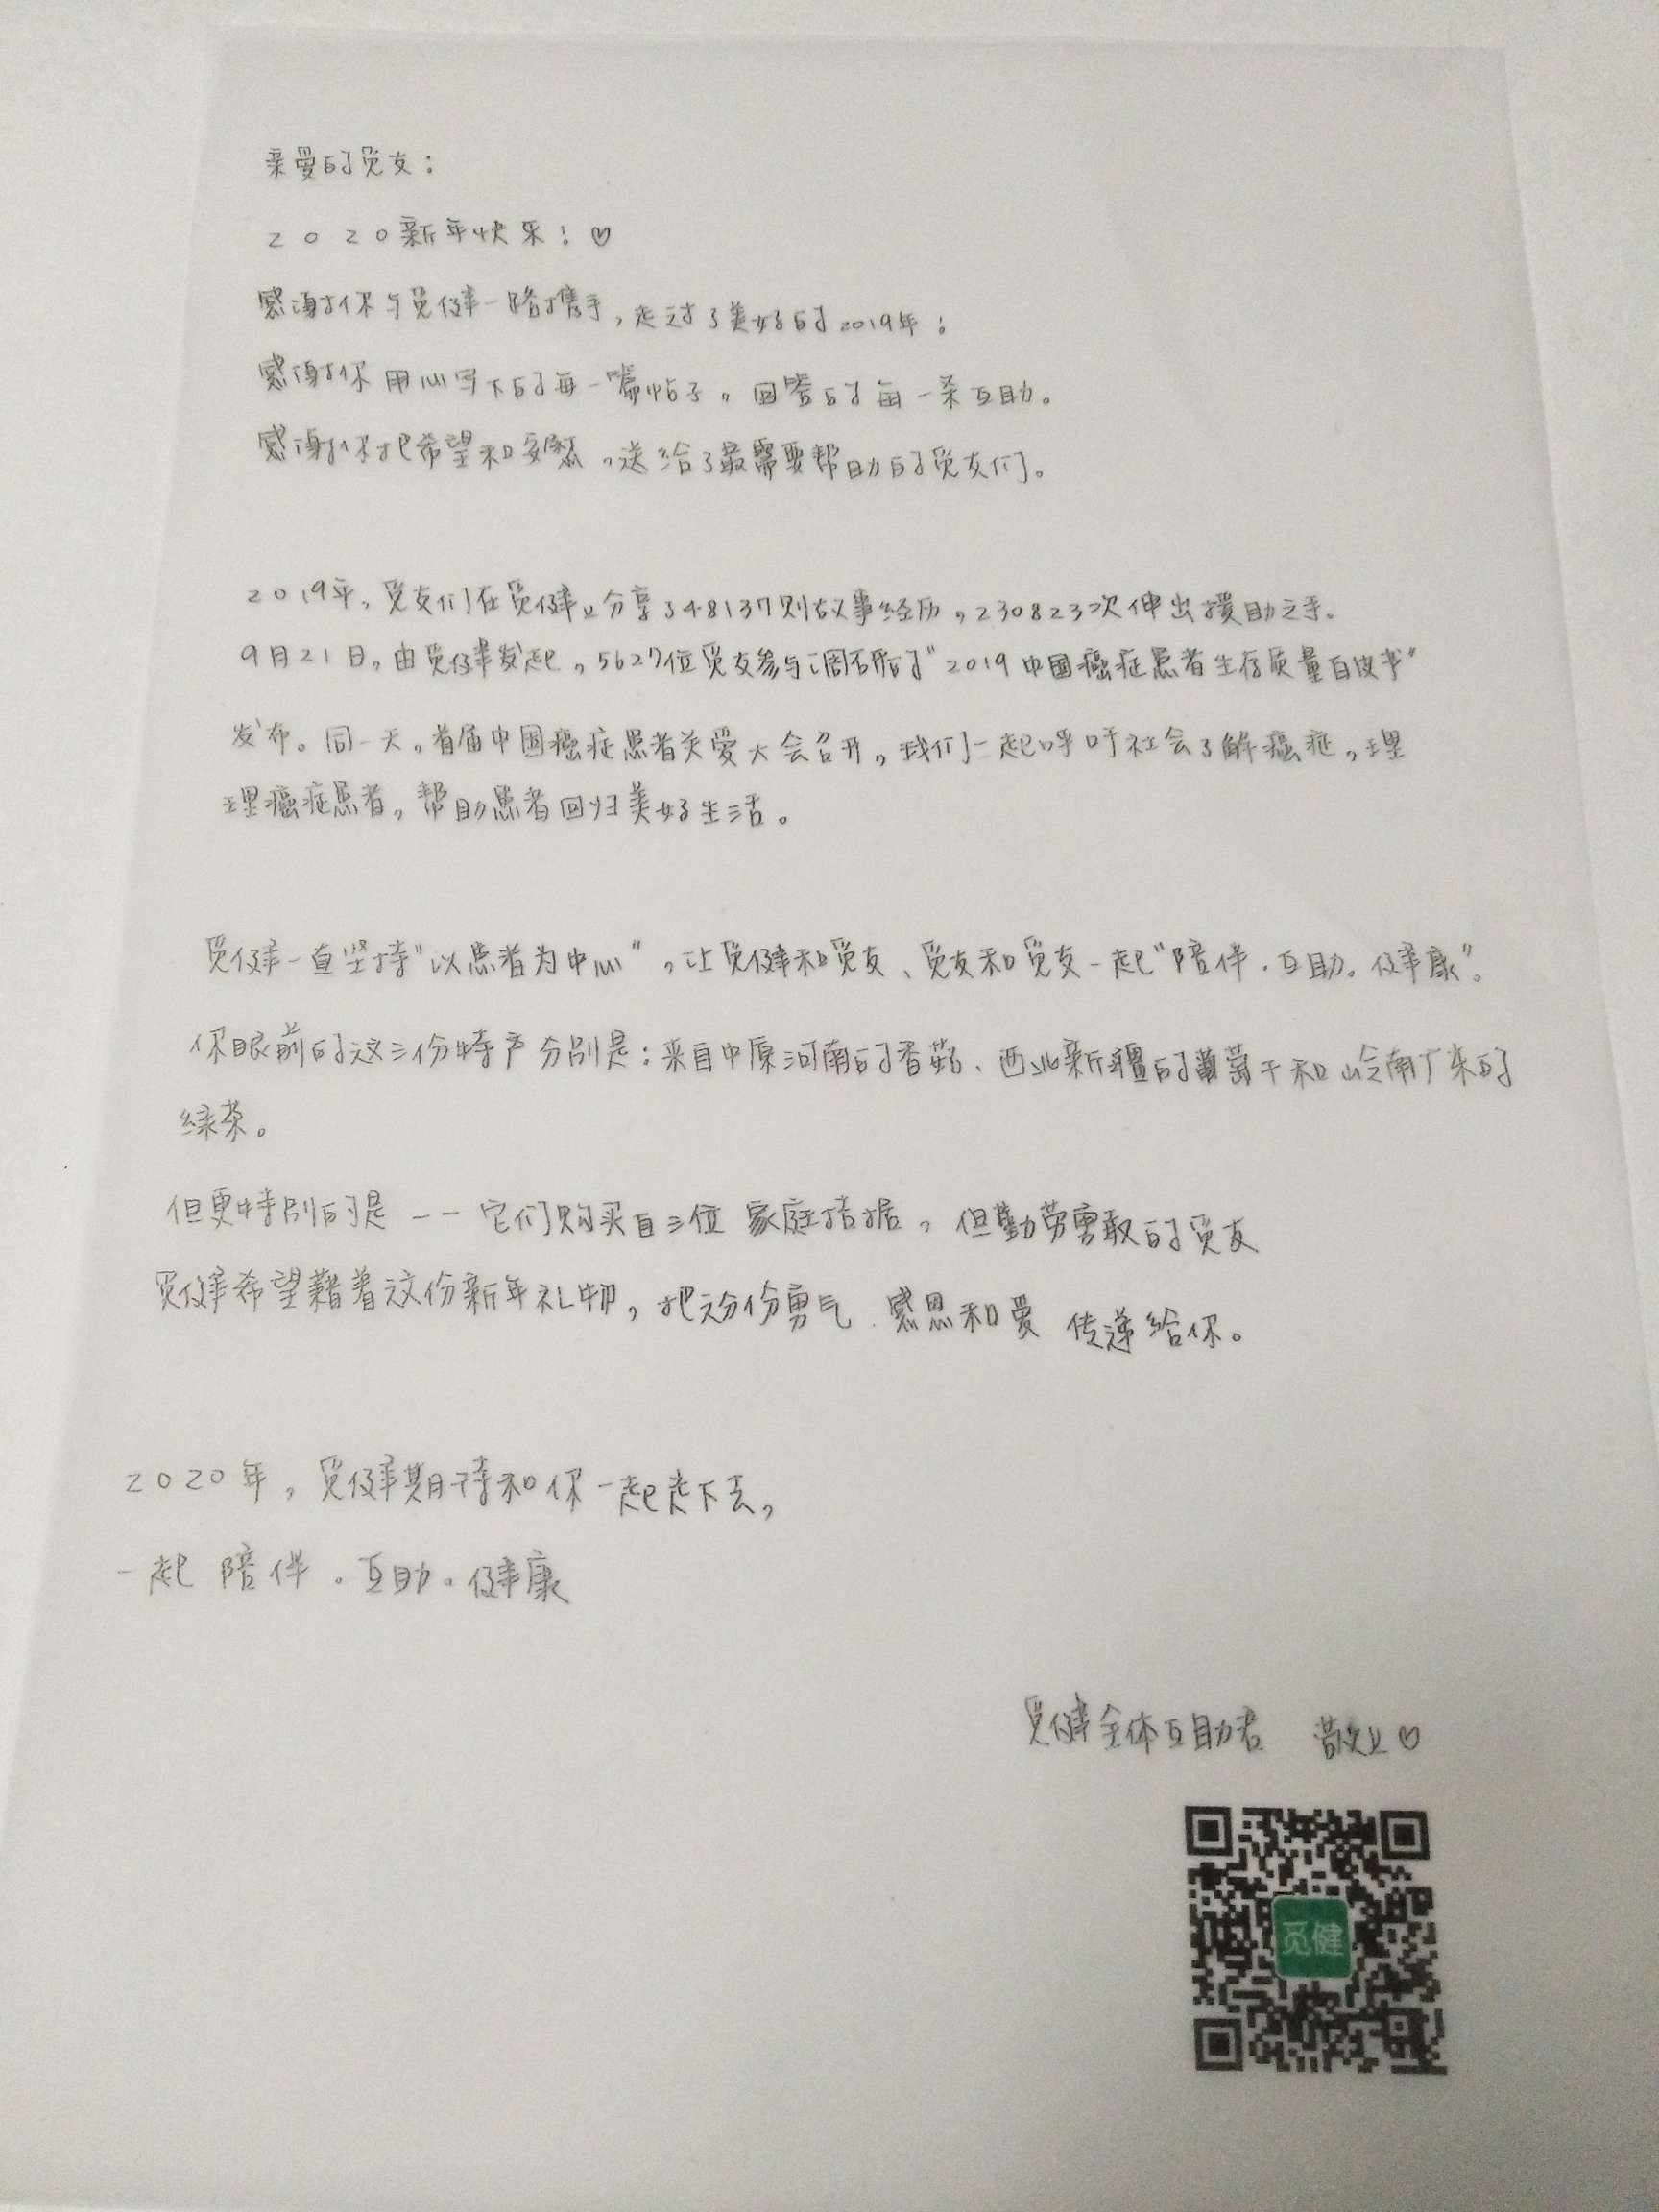 亲爱的觅友：
2020新年快乐！♡
感谢你与觅健一路携手，走过了美好的2019年；
感谢你用心写下的每一篇帖子，回答的每一条互助。
感谢你把希望和安慰，送给了最需要帮助的觅友们。
2019年，觅友们在觅健上分享348137则故事经历，230823次伸出援助之手。
9月21日，由觅健发起，5627位觅友参与调研的"2019中国癌症患者生存质量白皮书"
发布。同一天，首届中国癌症患者关爱大会召开，我们一起呼吁社会了解癌症，理
理癌症患者，帮助患者回归美好生活。
觅健一直坚持"以患者为中心"，让觅健和觅友、觅友和觅友一起"陪伴.互助。健康"。
你眼前的这三份特产分别是：来自中原河南的香菇、西北新疆的葡萄干和岭南广东的
绿茶。
但更特别的是--它们购买自三位 家庭拮据，但勤劳勇敢的觅友
觅健希望藉着这份新年礼物，把这份勇气.感恩和爱 传递给你。
2020年，觅健期待和你一起走下去，
一起 陪伴.互助.健康
觅健全体互助君 敬上♡
觅健